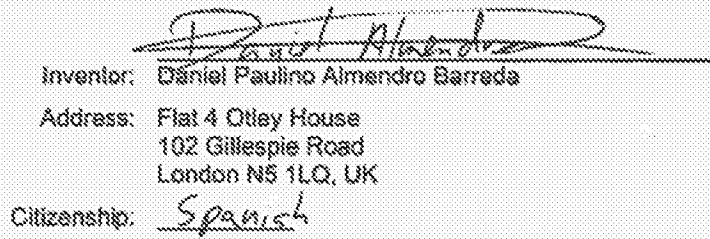 Daniel Almendro
Inventor: Daniel Paulino Almendro Barreda
Address: Flat 4 Otley House
102 Gillespie Road
London N5 1LQ, UK
Citizenship: Spanish